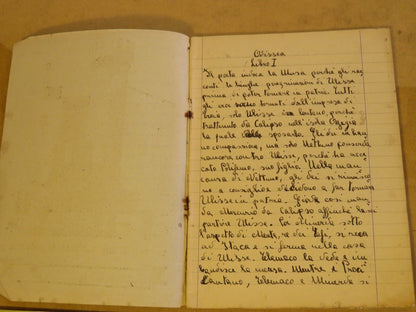 Odissea
Libro I
Il poeta invoca la Musa perché gli rac
conti le lunghe peregrinazioni di Ulisse
prima di poter tornare in patria. Tutti
gli eroi sono tornati dall'impresa di
Troia, solo Ulisse è lontano, perché
trattenuto da Calipso nell'isola Ogigia
la quale sposarlo. Gli dei ne han
no compassione, ma solo Nettuno conserva
rancore contro Ulisse, perché ha acce
cato Polifemo, suo figlio. Nella man
canza di Nettuno, gli dei si riunisco
no a consiglio e decidono a far tornare
Ulisse in patria. Giove così man
da Mercurio da Calipso affinché lasci
partire Ulisse. Poi Minerva sotto
l'aspetto di Mente, re dei Tafi, si reca
ad Itaca e si ferma nella casa
di Ulisse. Telemaco la vede e im
bandisce la mensa. Mentre i Proci
cantano, Telemaco e Minerva si